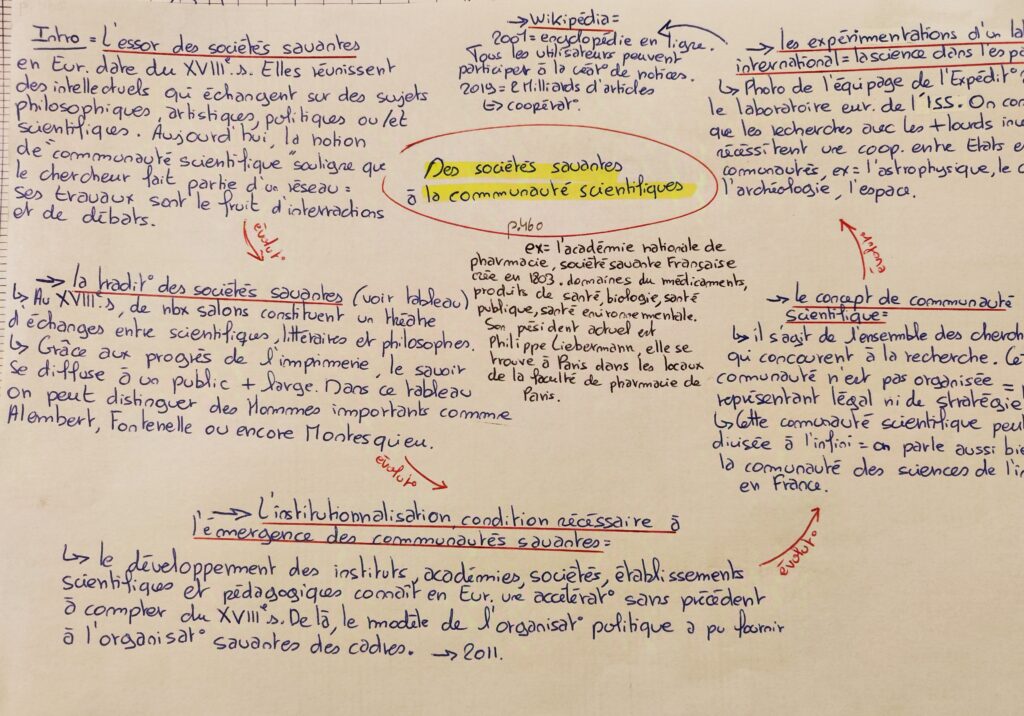 Intro = L'essor des sociétés savantes
en Eur. date du XVIIIe.s. Elles réunissent
des intellectuels qui échangent sur des sujets
philosophiques, artistiques, politiques ou/et
scientifiques. Aujourd'hui, la notion
de "communauté scientifique" souligne que
le chercheur fait partie d'un réseau =
ses travaux sont le fruit d'interractions
et de débats.
évolut°
→ la tradit° des sociétés savantes (voir tableau)
↳ Au XVIIIe.s, de nbx salons constituent un théâtre
d'échanges entre scientifiques, littéraires et philosophes.
↳ Grâce aux progrès de l'imprimerie, le savoir
se diffuse à un public + large. Dans ce tableau
on peut distinguer des Hommes importants comme
Alembert, Fontenelle ou encore Montesquieu.
évolut°
→ Wikipédia =
2001 = encyclopédie en ligne.
Tous les utilisateurs peuvent
participer à la créat° de notices.
2019 = 2 Milliards d'articles
↳ coopérat°.
Des sociétés savantes
à la communauté scientifiques
p.460
ex = l'académie nationale de
pharmacie, société savante Française
crée en 1803. domaines du médicaments,
produits de santé, biologie, santé
publique, santé environnementale.
Son président actuel est
Philippe Liebermann, elle se
trouve à Paris dans les locaux
de la faculté de pharmacie de
Paris.
→ L'institutionnalisation, condition nécéssaire à
l'émergence des communautés savantes =
↳ le développement des instituts, académies, sociétés, établissements
scientifiques et pédagogiques connaît en Eur. une accélérat° sans précédent
à compter du XVIIIe.s. De là, le modèle de l'organisat° politique a pu fournir
à l'organisat° savantes des cadres. → 2011.
évolut°
→ le concept de communauté
scientifique =
↳ il s'agit de l'ensemble des
qui concourent à la recherche.
communauté n'est pas organisée =
représentant légal ni de stratégie
↳ Cette communauté scientifique
divisée à l'infini = on parle aussi
la communauté des sciences de
en France.
évolut°
→ les expérimentations d'un
international = la science dans
↳ Photo de l'équipage de
le laboratoire eur. de l'ISS. On
que les recherches avec les + lourds
nécéssitent une coop. entre Etats
communautés, ex = l'astrophysique,
l'archéologie, l'espace.